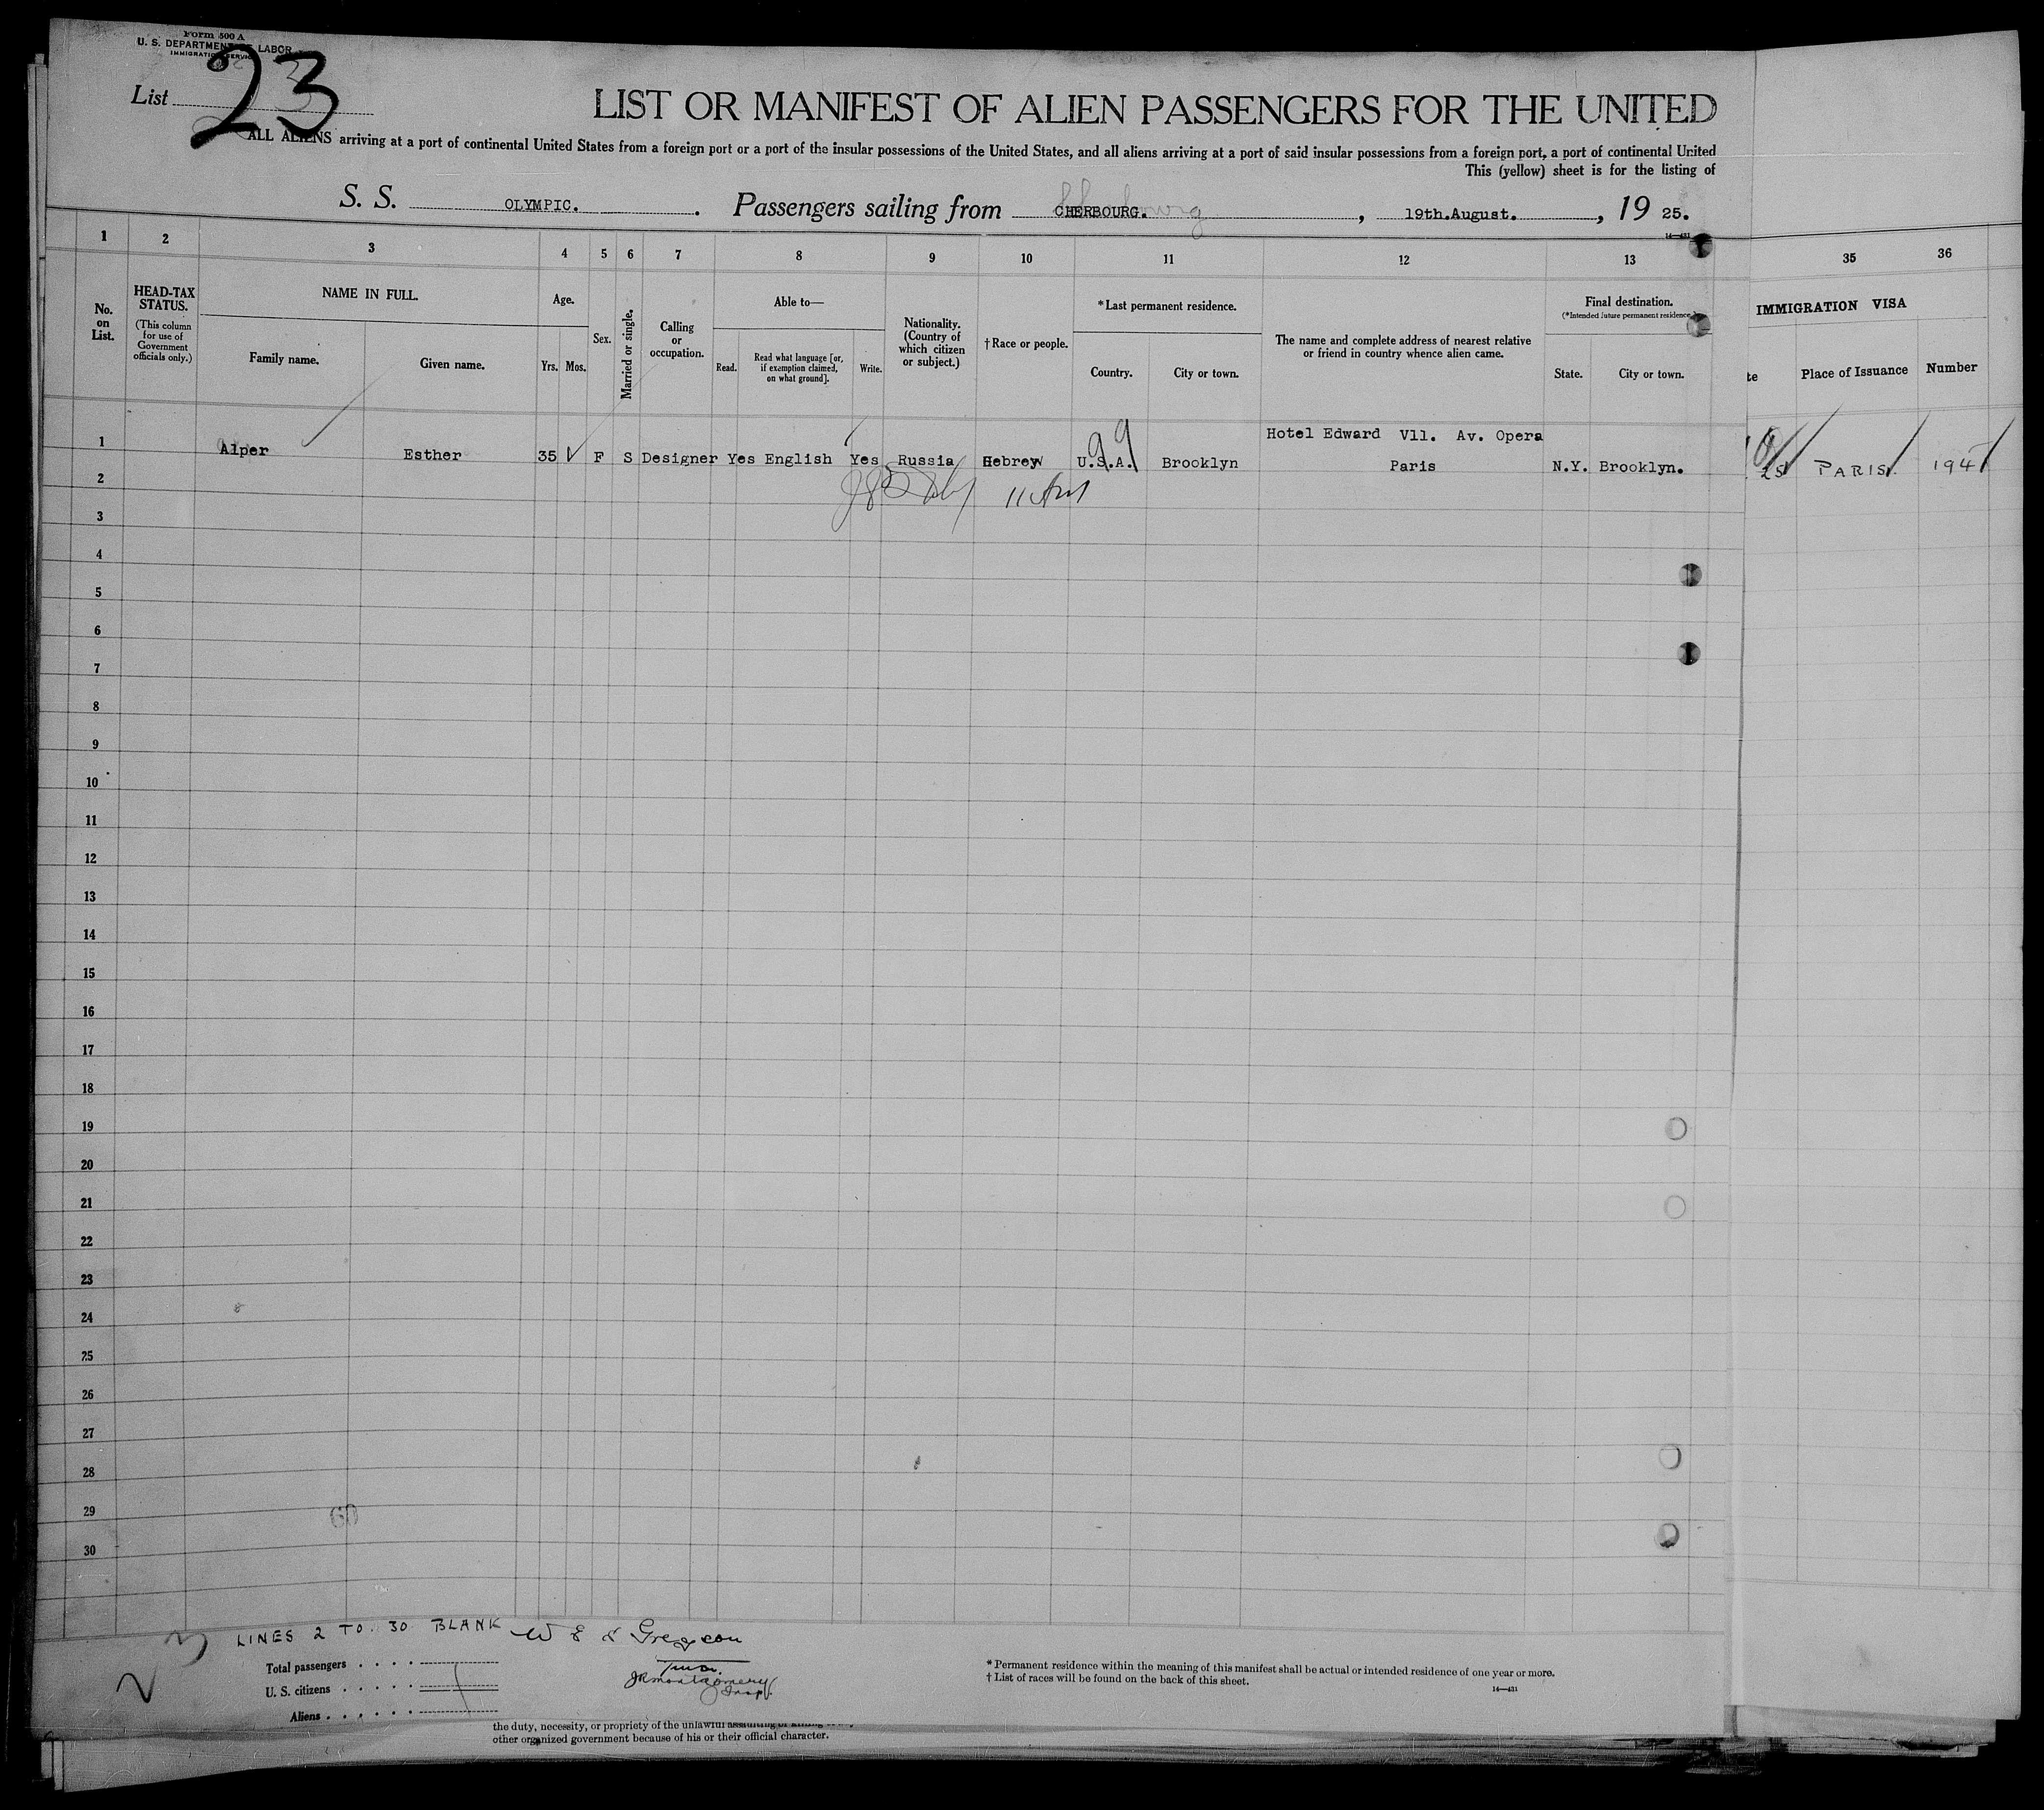 Form 500 A
U. S. DEPARTMENT OF LABOR
IMMIGRATION SERVICE
List 23
LIST OR MANIFEST OF ALIEN PASSENGERS FOR THE UNITED
ALL ALIENS arriving at a port of continental United States from a foreign port or a port of the insular possessions of the United States, and all aliens arriving at a port of said insular possessions from a foreign port, a port of continental United
This (yellow) sheet is for the listing of
S. S. OLYMPIC. Passengers sailing from CHERBOURG. , 19th.August. , 19 25.
14—431
1 2 3 4 5 6 7 8 9 10 11 12 13 35 36
No. on List.
HEAD-TAX STATUS.
(This column for use of Government officials only.)
NAME IN FULL.
Family name. Given name.
Age.
Yrs. Mos.
Sex.
Married or single.
Calling or occupation.
Able to—
Read. Read what language [or, if exemption claimed, on what ground]. Write.
Nationality. (Country of which citizen or subject.)
†Race or people.
*Last permanent residence.
Country. City or town.
The name and complete address of nearest relative or friend in country whence alien came.
Final destination.
(*Intended future permanent residence.)
State. City or town.
IMMIGRATION VISA
te Place of Issuance Number
Hotel Edward Vll. Av. Opera
1 Alper Esther 35 F S Designer Yes English Yes Russia Hebrew U.S.A. Brooklyn Paris N.Y. Brooklyn. 25 PARIS. 1947
99
2
3
4
5
6
7
8
9
10
11
12
13
14
15
16
17
18
19
20
21
22
23
24
25
26
27
28
29
60
30
LINES 2 TO. 30 BLANK
Total passengers . . . .
U. S. citizens . . . . .
Aliens . . . . . .
JRMontgomery
Insp.
* Permanent residence within the meaning of this manifest shall be actual or intended residence of one year or more.
† List of races will be found on the back of this sheet.
14—431
the duty, necessity, or propriety of the unlawful assaulting or killing
other organized government because of his or their official character.